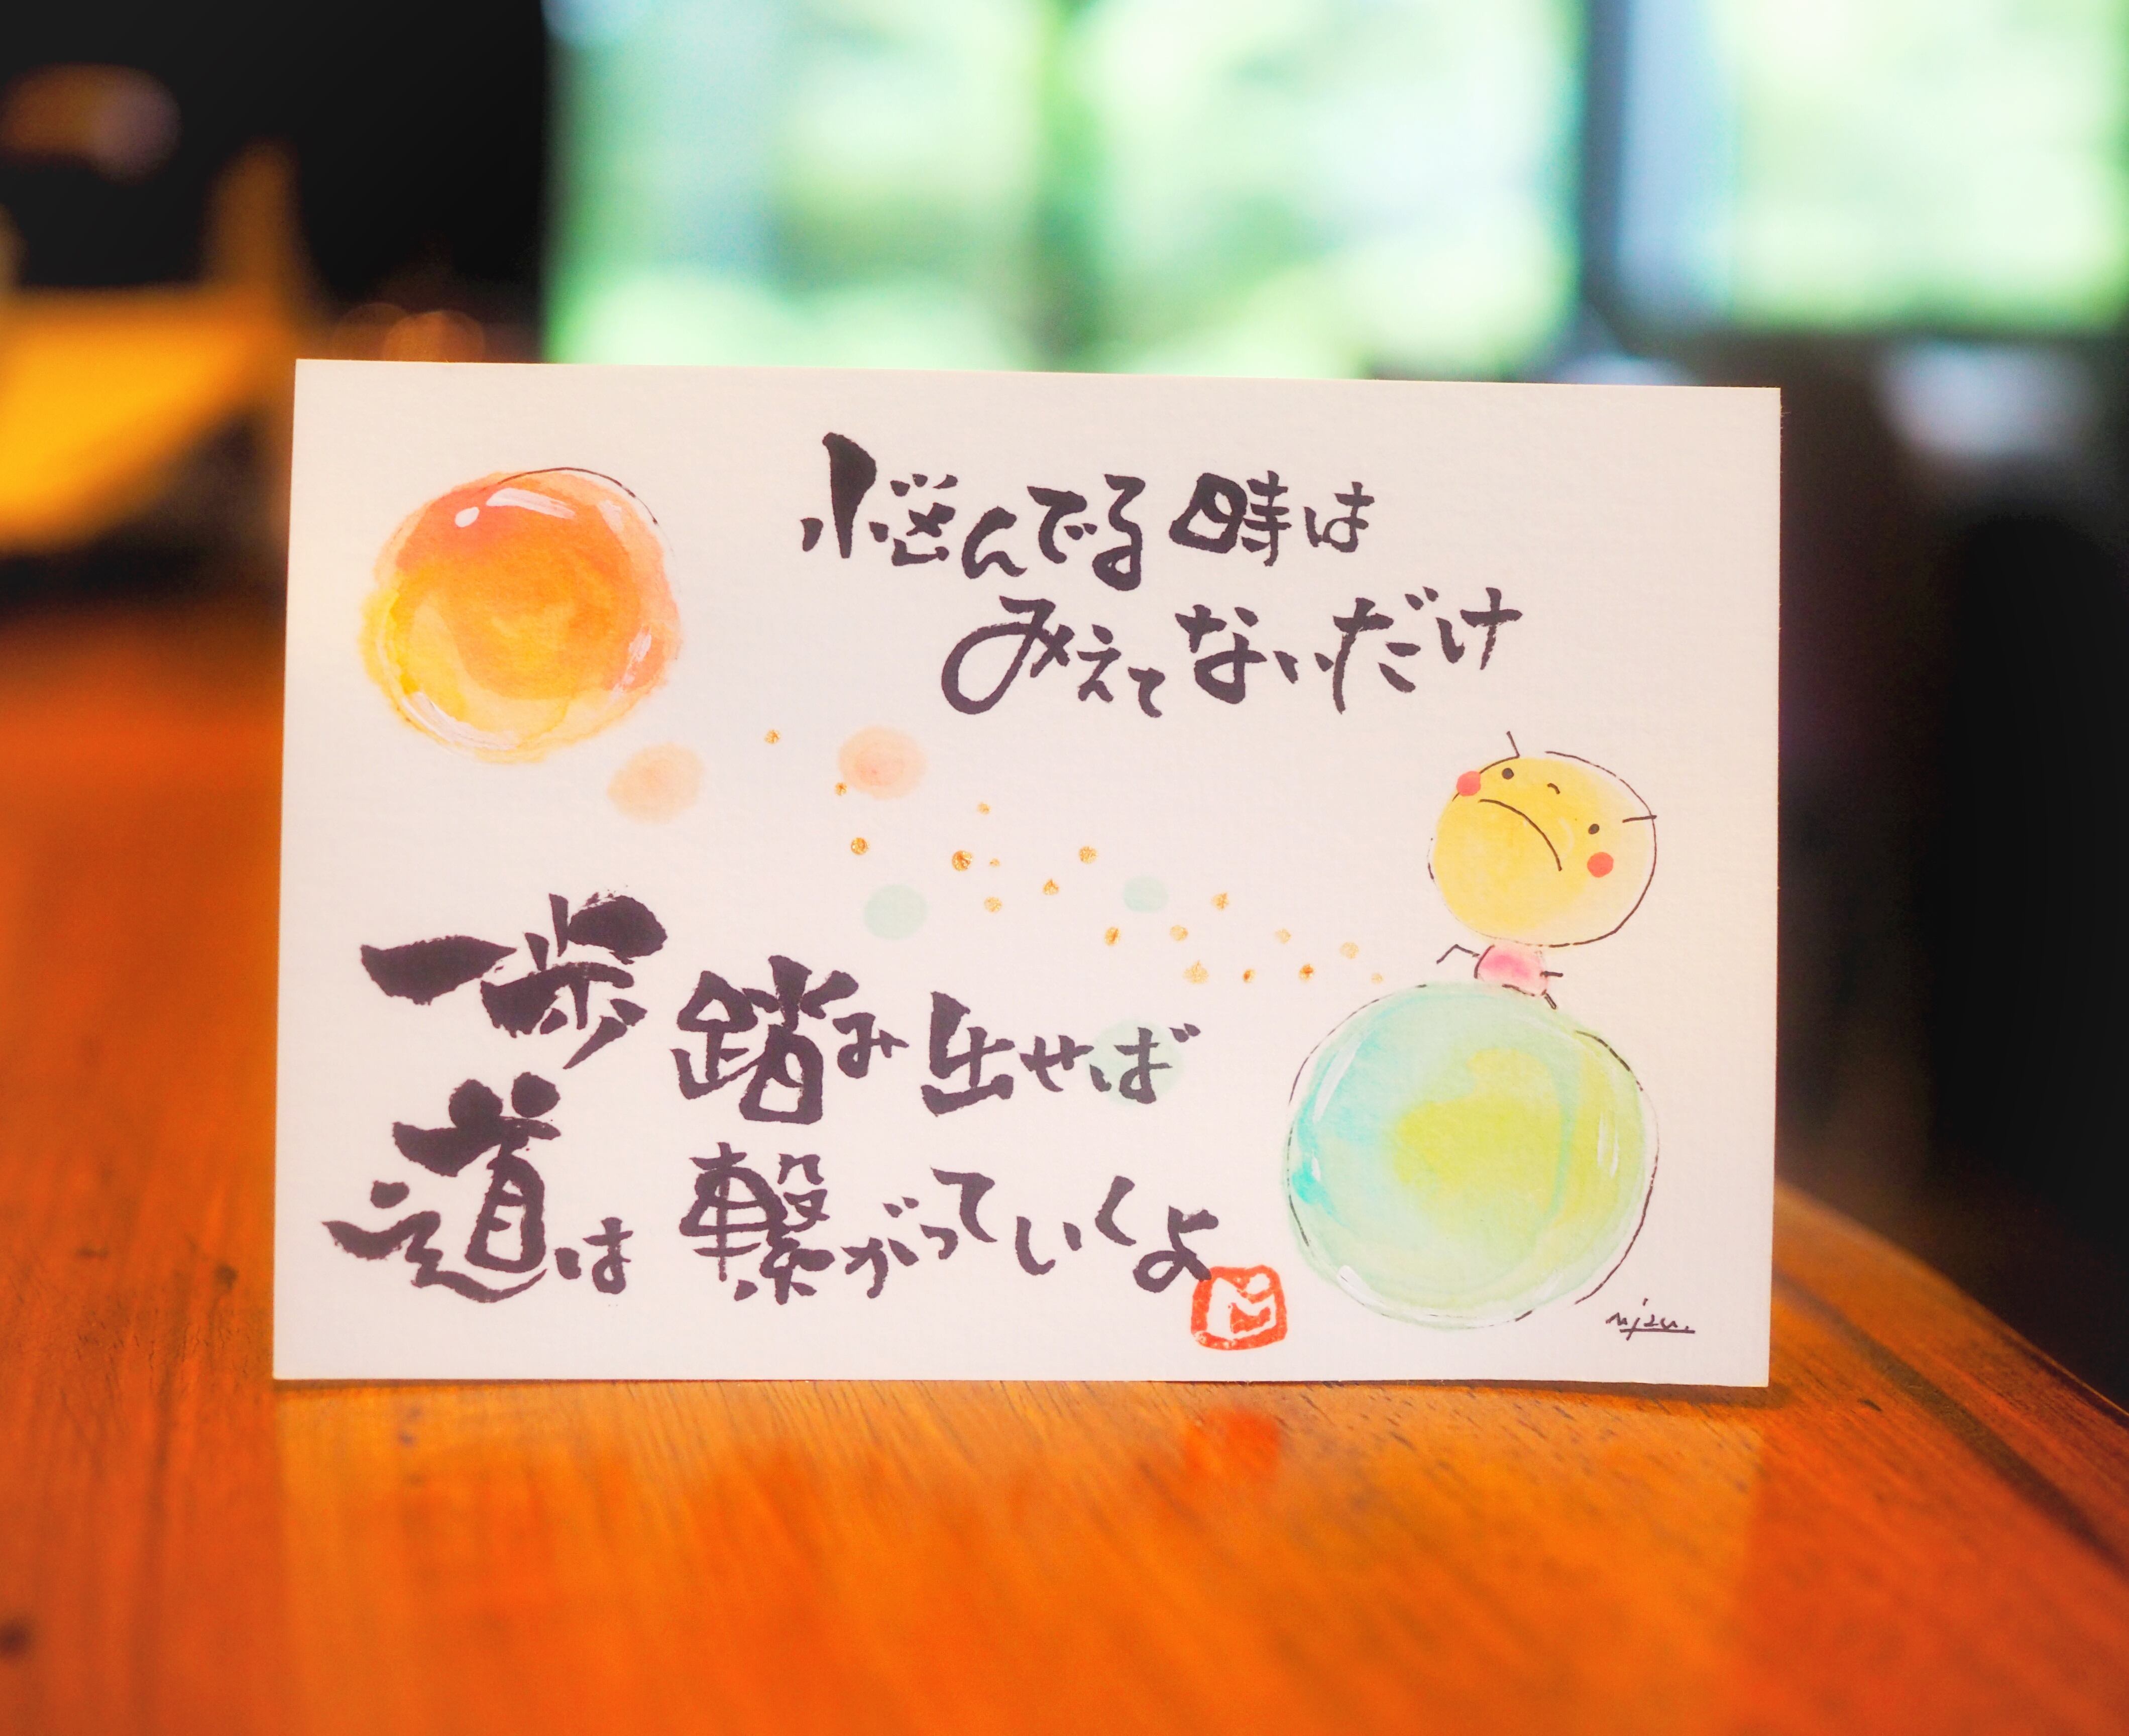 悩んでる時は
みえてないだけ
一歩踏み出せば
道は繋がっていくよ